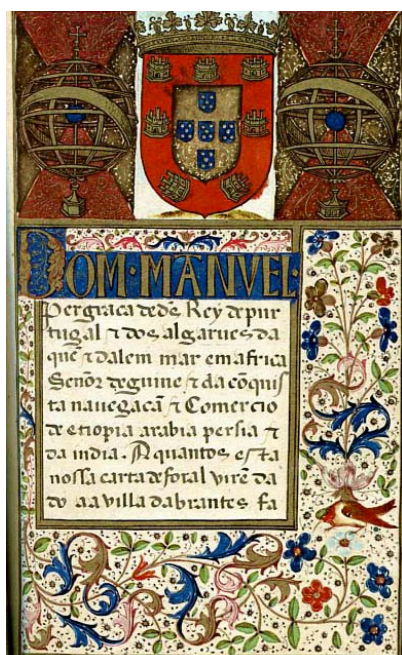 DOM·MANVEL·
Per graca de dẽ Rey de pur
tugal ⁊ dos algarues da
quẽ ⁊ dalem mar em africa
Senõr de guine ⁊ da cõquis
ta nauegacã ⁊ Comercio
de etiopia arabia persia ⁊
da india. A quantos esta
nossa carta de foral virẽ da
do aa villa dabrantes fa